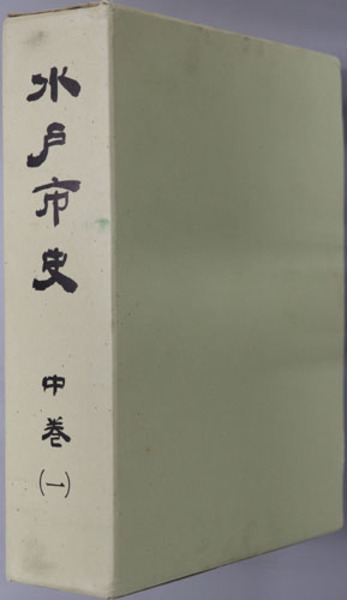 水戸市史
中巻
(一)